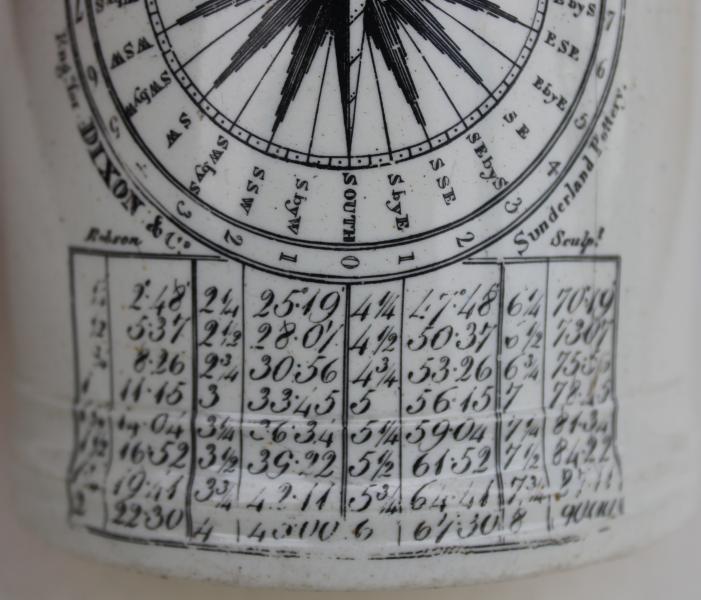 E by S
WSW
ESE
SW by W
E by E
SW
SE
SW by S
SE by S
SSW
SSE
S by W
S by E
SOUTH
7 6 5 4 3 2 1 0 1 2 3 4 5 6 7
DIXON & Co.
Sunderland Pottery.
Robson
Sculpt.
2·48 2¼ 25·19 4¼ 47·48 6¼ 70·19
5·37 2½ 28·07 4½ 50·37 6½ 73·07
8·26 2¾ 30·56 4¾ 53·26 6¾
1 11·15 3 33·45 5 56·15 7
14·04 3¼ 36·34 5¼ 59·04 7¼ 81·34
16·52 3½ 39·22 5½ 61·52 7½ 84·22
19·41 3¾ 42·11 5¾ 64·41 7¾
2 22·30 4 45·00 6 67·30 8